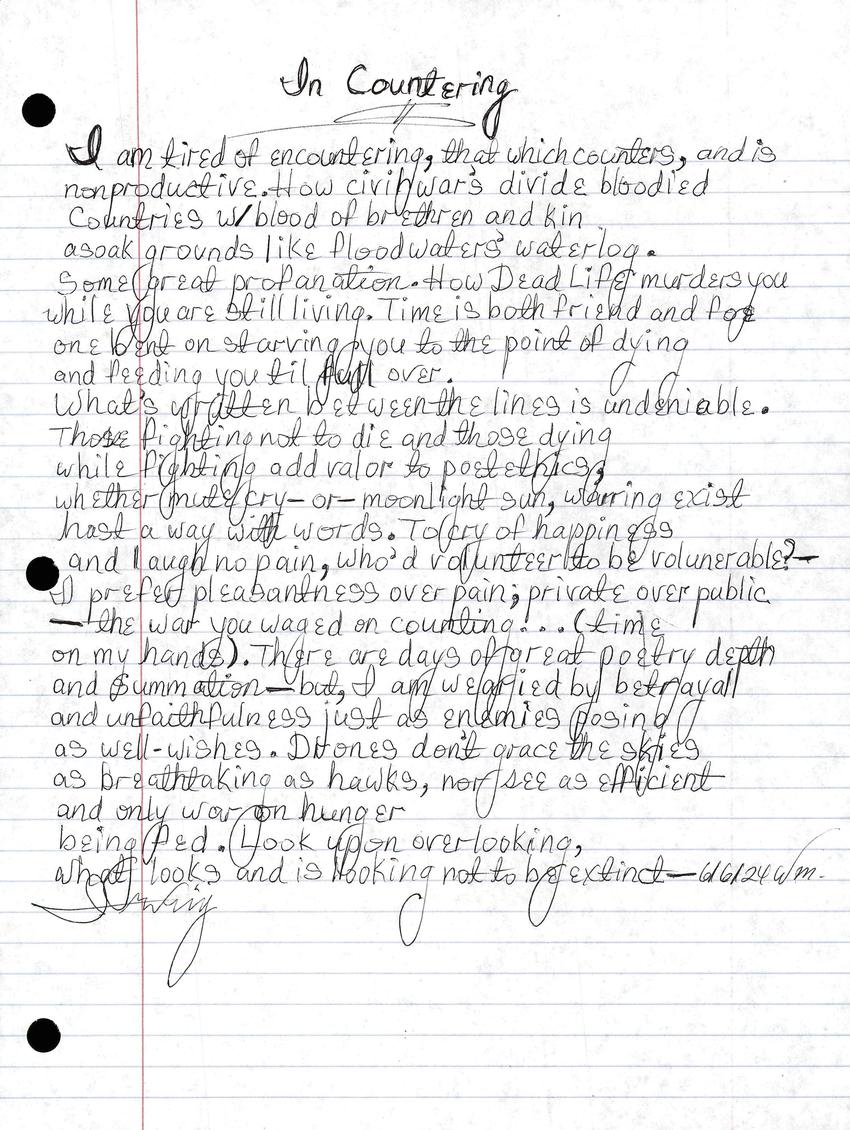 In Countering
I am tired of encountering, that which counters, and is
nonproductive. How civil war's divide bloodied
Countries w/ blood of brethren and kin
asoak grounds like floodwaters' waterlog.
Some great profanation. How Dead Life murders you
while you are still living. Time is both friend and foe
one bent on starving you to the point of dying
and feeding you til full over.
What's written between the lines is undeniable.
Those fighting not to die and those dying
while fighting add valor to poetethics,
whether mute cry-or-moonlight sun, warring exist
hast a way with words. To cry of happiness
and laugh no pain, who'd volunteer to be volunerable?—
I prefer pleasantness over pain; private over public
— the war you waged on counting!... (time
on my hands). There are days of great poetry depth
and summation — but, I am wearied by betrayal
and unfaithfulness just as enemies posing
as well-wishes. Drones don't grace the skies
as breathtaking as hawks, nor see as efficient
and only war on hunger
being fed. Look upon overlooking,
what looks and is looking not to be extinct — 6/6/24 Wm.